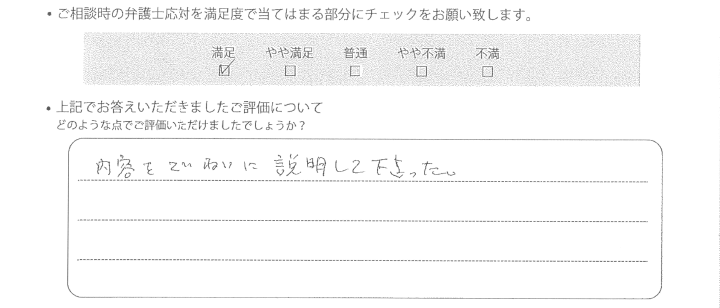 ・ご相談時の弁護士応対を満足度で当てはまる部分にチェックをお願い致します。
満足 やや満足 普通 やや不満 不満
☑ □ □ □ □
・上記でお答えいただきましたご評価について
どのような点でご評価いただけましたでしょうか？
内容をていねいに説明して下さった。